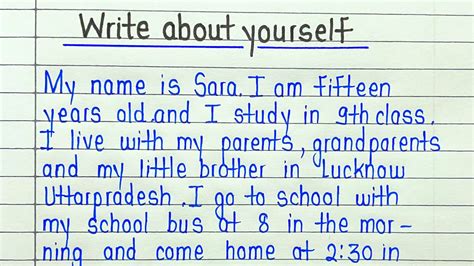 Write about yourself
My name is Sara. I am fifteen
years old.and I study in 9th class.
I live with my parents, grandparents
and my little brother in Lucknow
Uttarpradesh. I go to school with
my school bus at 8 in the mor-
ning and come home at 2:30 in